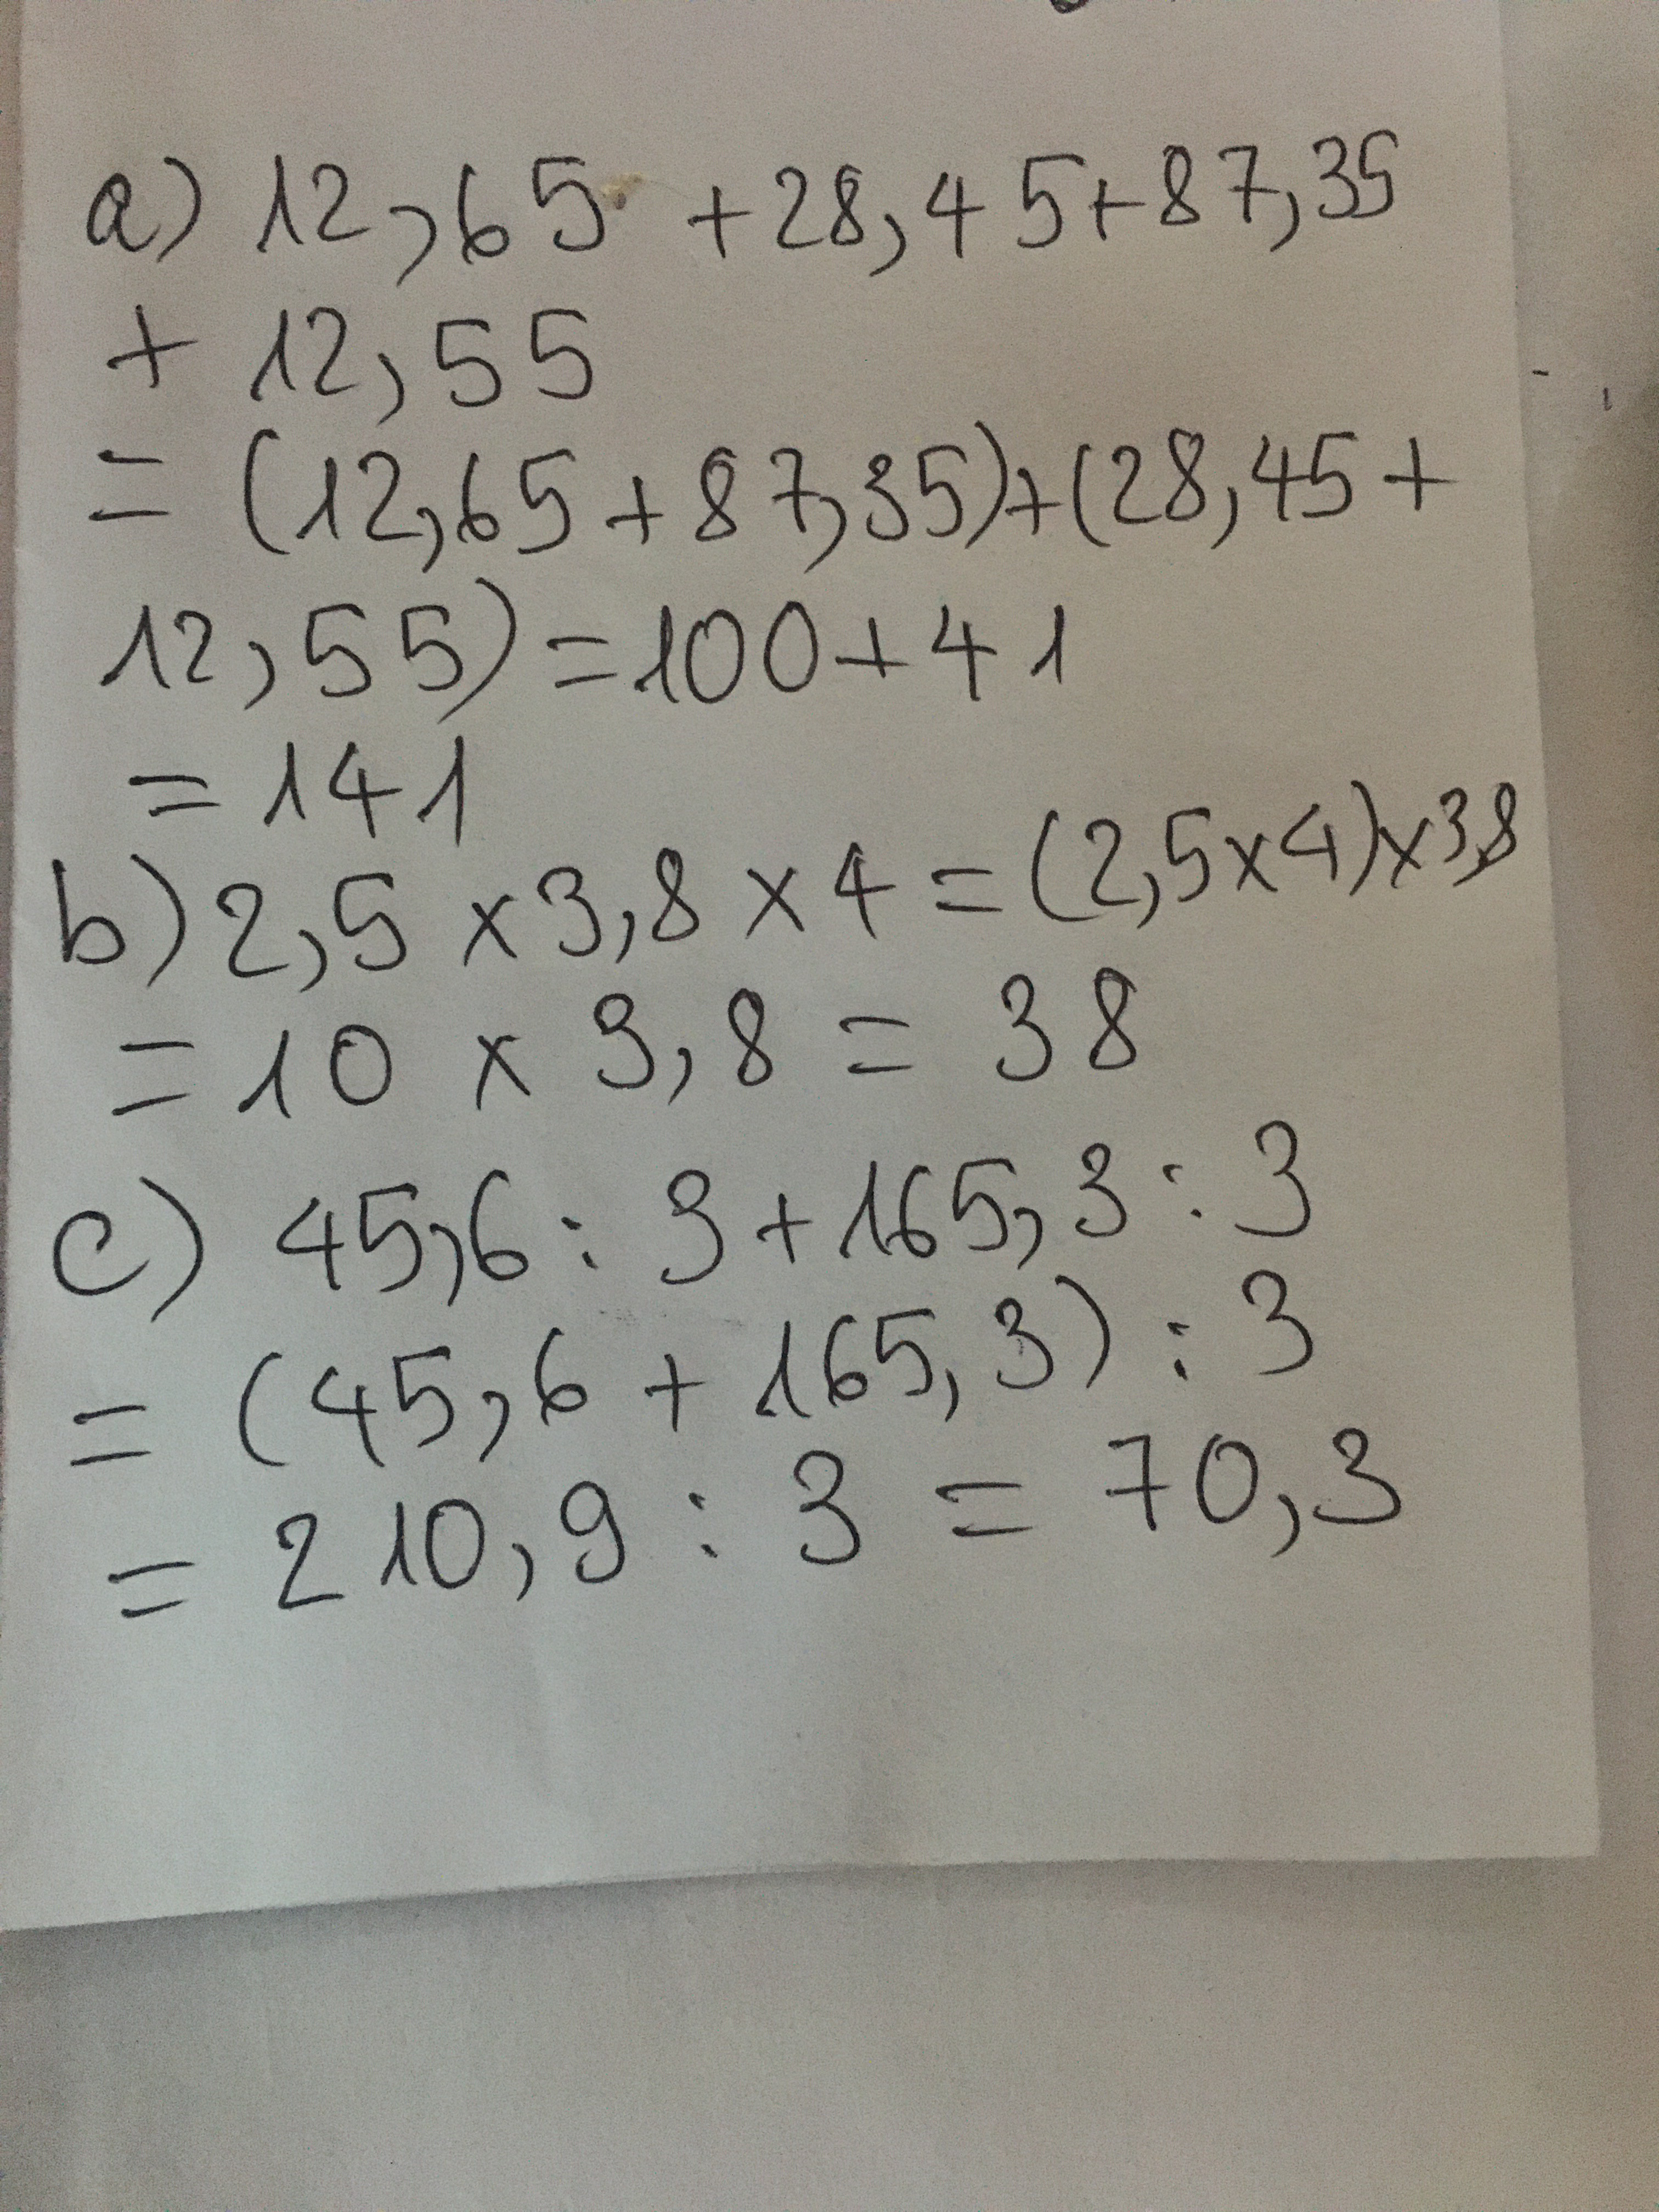 a) 12,65 + 28,45 + 87,35
+ 12,55
= (12,65 + 87,35) + (28,45 +
12,55) = 100 + 41
= 141
b) 2,5 x 3,8 x 4 = (2,5 x 4) x 3,8
= 10 x 3,8 = 38
c) 45,6 : 3 + 165,3 : 3
= (45,6 + 165,3) : 3
= 210,9 : 3 = 70,3